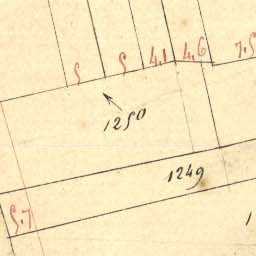 5 5 4.1 4.6 7.5
1250
1249
5.7
1